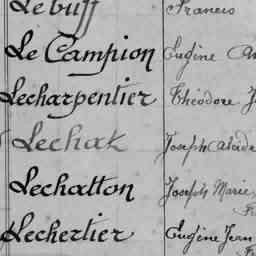 Lebuff Francis
Le Campion Eugène
Lecharpentier Théodore
Lechat Joseph Alcide
Lechatton Joseph Marie
Lechertier Eugène Jean